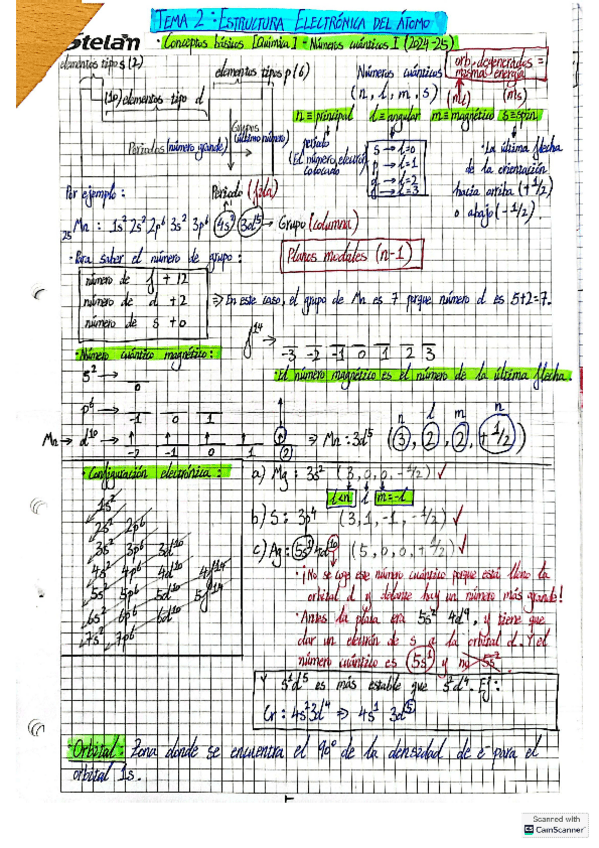 TEMA 2: ESTRUCTURA ELECTRÓNICA DEL ÁTOMO
Stelan
· Conceptos básicos [Química] = Números cuánticos I (2024-25)
elementos tipo s (2)
elementos tipos p (6)
(10) elementos tipo d
Números cuánticos
(n, l, m, s)
(ml) (ms)
orb. degenerados =
mismas energía
n ≡ principal l ≡ angular m ≡ magnético s ≡ spin
Grupos
(último número)
Periodos (número grande)
periodo
(El número electrón
colocado
s → l=0
p → l=1
d → l=2
f → l=3
· La última flecha
de la orientación
hacia arriba (+1/2)
o abajo (-1/2).
Por ejemplo:
Periodo (fila)
25Mn: 1s² 2s² 2p⁶ 3s² 3p⁶ 4s² 3d⁵ → Grupo (columna)
· Para saber el número de grupo:
Planos modales (n-1)
número de f + 12
número de d + 2
número de s + 0
⇒ En este caso, el grupo de Mn es 7 porque número d es 5+2=7.
f¹⁴ →
-3 -2 -1 0 1 2 3
· Número cuántico magnético:
· El número magnético es el número de la última flecha.
s² →
0
p⁶ →
-1 0 1
n l m n
Mn → d¹⁰ → ⇒ Mn: 3d⁵ (3, 2, 2, +1/2)
-2 -1 0 1 2
· Configuración electrónica:
1s²
2s² 2p⁶
3s² 3p⁶ 3d¹⁰
4s² 4p⁶ 4d¹⁰ 4f¹⁴
5s² 5p⁶ 5d¹⁰ 5f¹⁴
6s² 6p⁶ 6d¹⁰
7s² 7p⁶
a) Mg: 3s² (3, 0, 0, -1/2) ✓
l<n l m=-l
b) S: 3p⁴ (3, 1, -1, -1/2) ✓
c) Ag: 5s¹ 4d¹⁰ (5, 0, 0, +1/2) ✓
¡No se coge este número cuántico porque está lleno la
orbital d y delante hay un número más grande!
· Antes la plata era 5s² 4d⁹, y tiene que
dar un electrón de s a la orbital d. Y el
número cuántico es 5s¹ y no 5s².
s¹d⁵ es más estable que s²d⁴. Ej:
Cr: 4s² 3d⁴ ⇒ 4s¹ 3d⁵
· Orbital: Zona donde se encuentra el 90% de la densidad de e⁻ para el
orbital 1s.
Scanned with
CamScanner